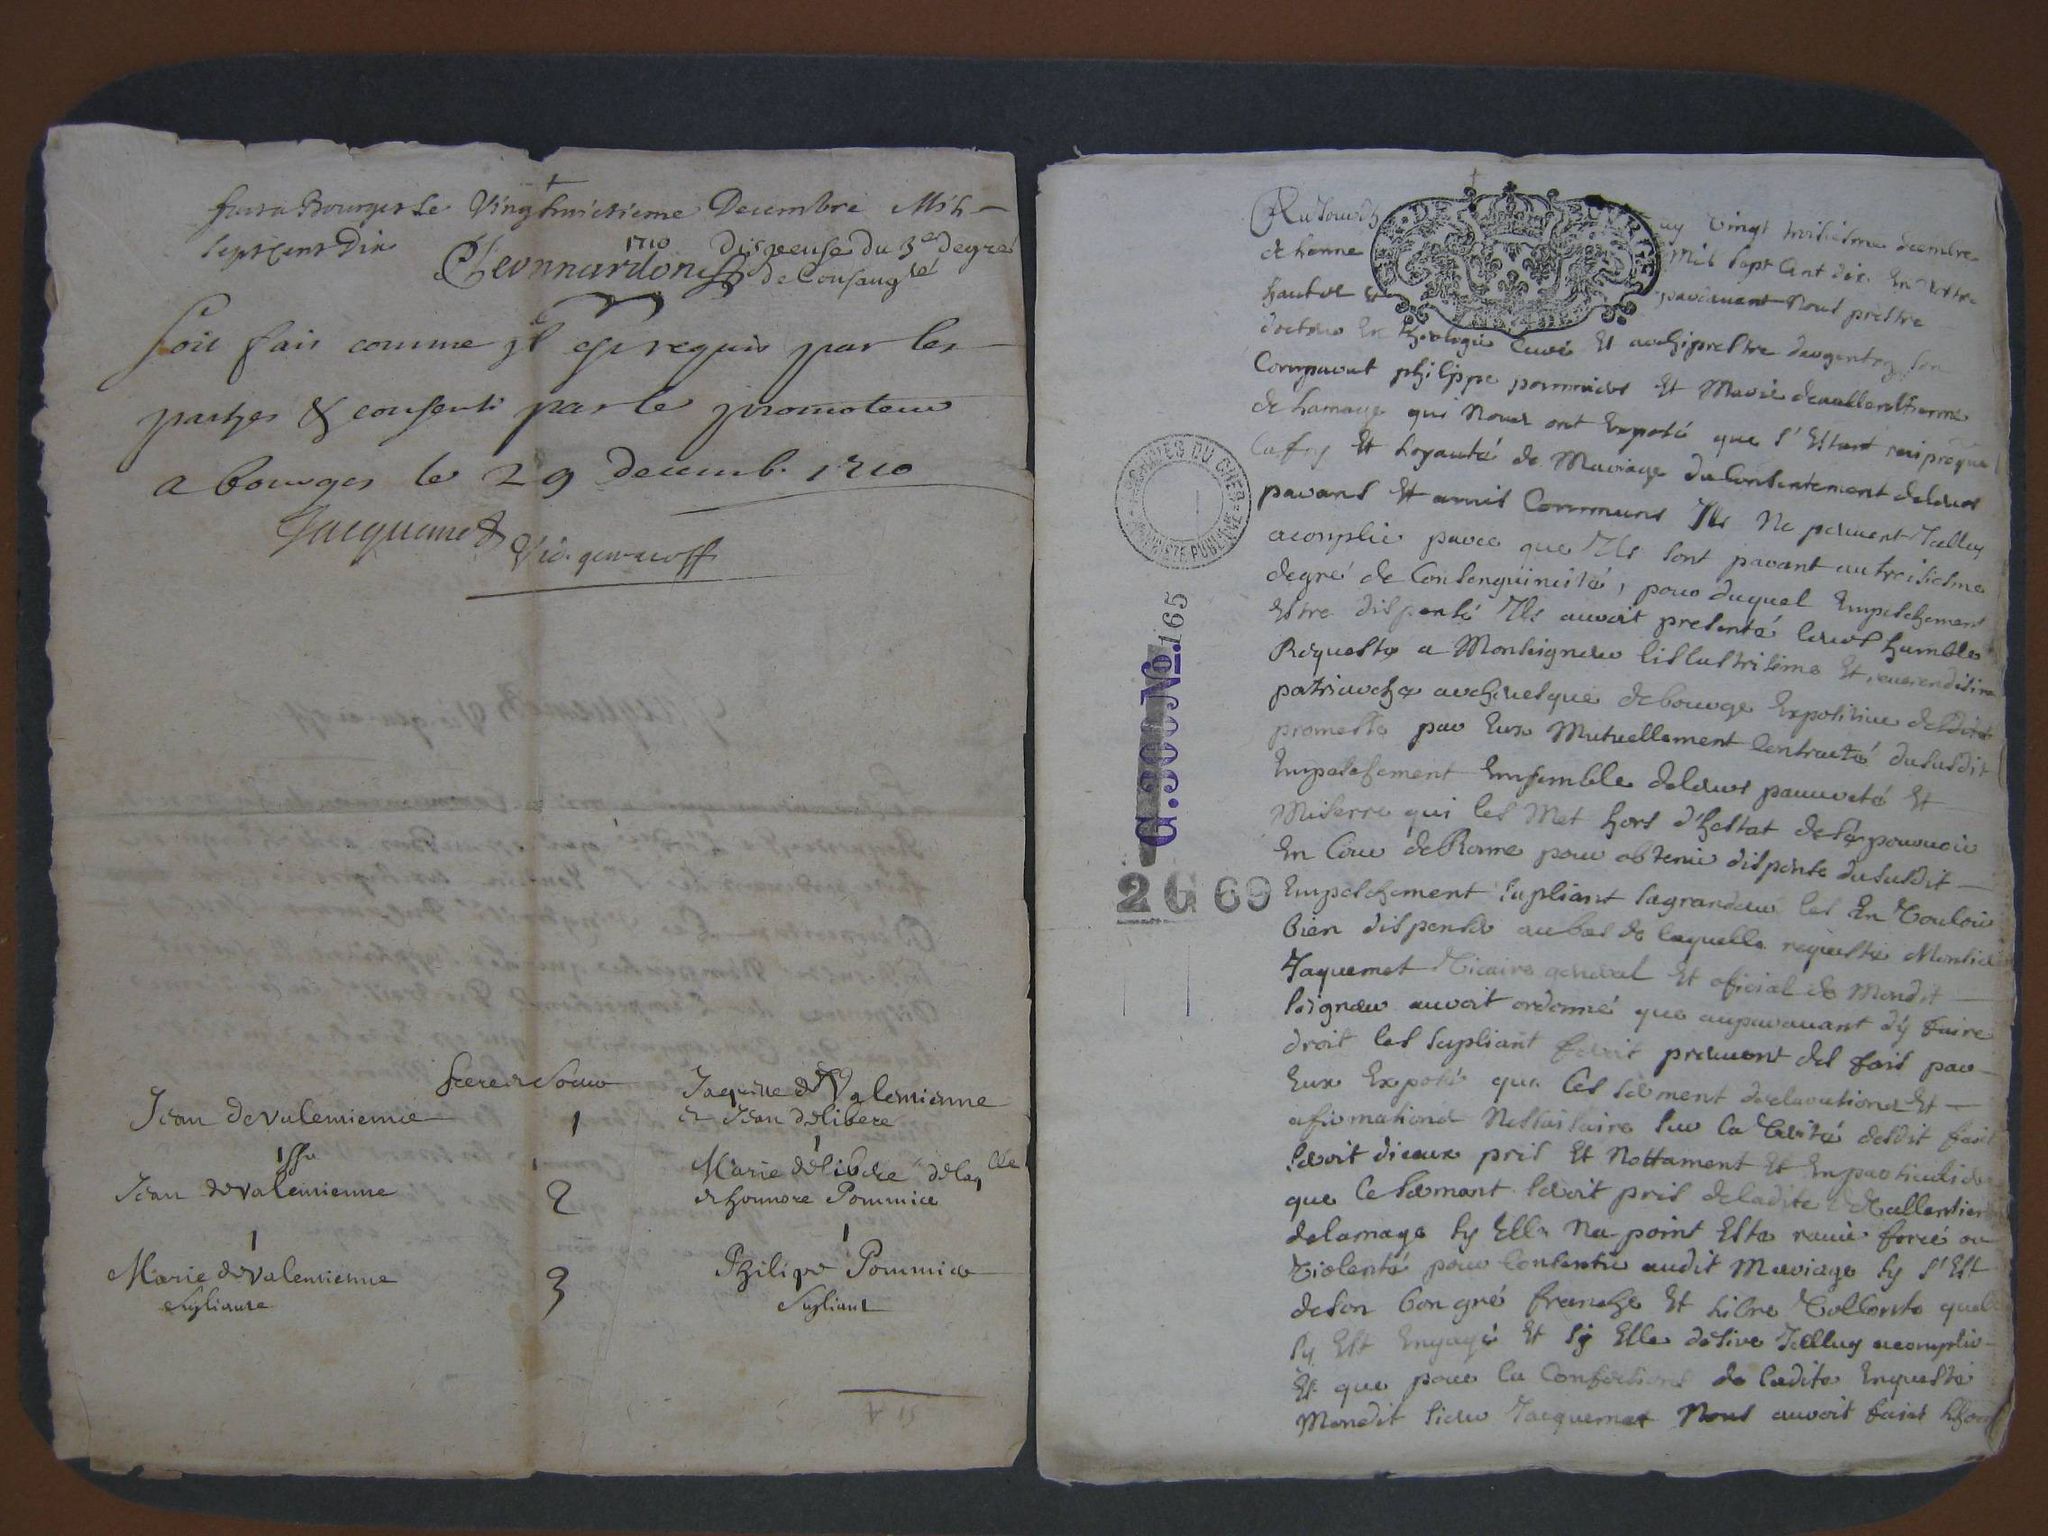 fait a Bourges Le Vingthuictieme Decembre Mil
Sept Cent Dix
1710
Dispense du 3e degré
de Consangté
Soit fait comme jl est requis par les
partyes & consenti par le promoteur
a bourges le 29 decemb. 1710
Jacquemet
Vic. gen. et off
frere et Soeur
Jean de Valentienne 1 Jaquette de Valentienne
et Jean delibere
issu
Jean de Valentienne 2 Marie delibere de laqlle
et honnore Pommier
Marie de Valentienne 3 Philipe Pommier
Supliante Supliant
Aujourdhuy vingt troisiesme decembre
Mil sept Cent dix En nostre
hautel et pardevant Nous prestre
docteur En theologie Curé Et archiprestre dargenton, son
Comparut philippe pommier Et Marie devallentienne
de lamage qui Nous ont Exposé que s'Estant reciproque
la foy Et Loyauté de Mariage du Consentement de leurs
parans Et amis Communs Ils Ne peuvent Icelluy
acomplir parce que Ils sont parant au troisiesme
degré de Consenguinité, pour duquel Empeschement
Estre dispensé Ils auroit presenté leurs humble
Requeste a Monseigneur lillustrisime Et, reverendisime
patriarche archevesque de bourge Expositive desdites
promesse par Eux Mutuellement Contracté du susdit
Empeschement Ensemble de leurs pauvreté Et
Miserre qui les Met hors d'hestat de se pourvoir
En Cour de Rome pour obtenir dispense du susdit
Empeschement supliant sa grandeur les En Vouloir
bien dispenser au bas de laquelle requeste Monsieur
Jaquemet Vicaire general Et oficial de Mondit
seigneur auroit ordonné que auparavant dy faire
droit les supliant feroit preuvent des fais par
Eux Exposé que les serment declarations Et
afirmations Nessaisaire sur la Verité desdit fait
seroit dieux pris Et Nottament Et En particulier
que le sermant seroit pris de ladite de Vallentienne
de lamage sy Elle Na point Esté ravie forcé ou
Violenté pour Consentir audit Mariage sy s'Est
de son bon gré franche Et Libre Vollonté quel
sy Est Engagé Et sy Elle desire Icelluy acomplir
Et que pour la Confections de ladite Enqueste
Mondit sieur Jacquemet Nous auroit fait
ARCHIVES DU CHER
G.300 No. 165
2 G 69